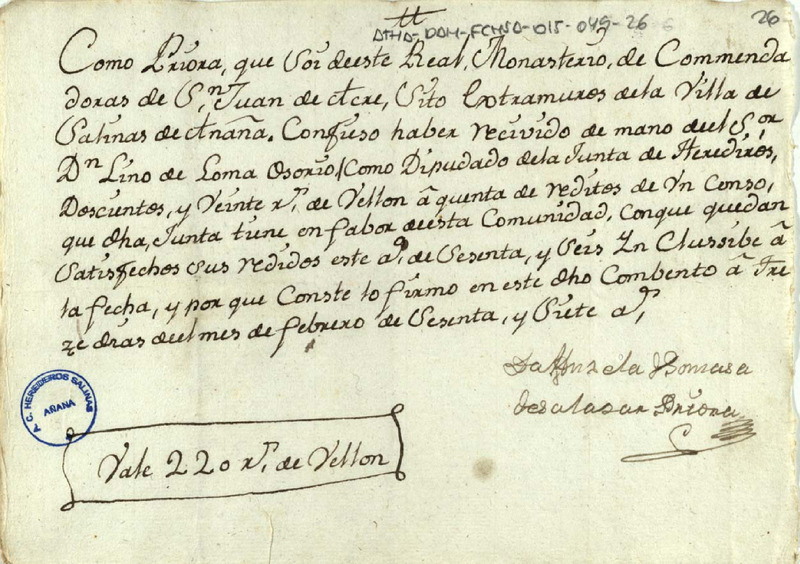 ATHA-DAH-FCHSA-015-049-26
26
Como Priora, que Soi de este Real, Monasterio, de Commenda
doras de Sn. Juan de Acre, Sito Extramuros de la Villa de
Salinas de Añana. Confieso haber recivido de mano del Sor
Dn Lino de Loma Osorio, Como Diputado de la Junta de Herediros,
Descientos, y Veinte rs. de Vellon â quenta de reditos de Vn Censo,
que dha, Junta tiene en fabor de esta Comunidad, Conque quedan
Satisfechos sus redidos este ao, de Sesenta, y Seis In Clussibe â
la fecha, y por que Conste lo firmo en este dho Combento â Tre
ze dias del mes de febrero de Sesenta, y Siete as,
de Salazar Priora
Vale 220 rs. de Vellon
C. HEREDEROS SALINAS
AÑANA